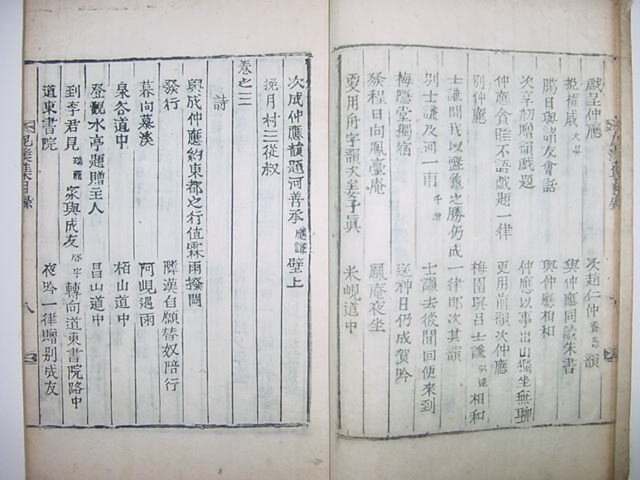 戲呈仲應
次趙仁仲 韻
挽權戚
與仲應同讀朱書
臘日與諸友會話
與仲應相和
次李初贈韻戲題
仲應以事出山獨坐無聊
仲應貪睡不語戲題一律
更用前韻次仲應
別仲應
梅園與呂士謙 相和
士謙問我以盤龜之勝仍成
一律卽次其韻
別士謙及河一甫
士謙去後閒回使來到
梅隱堂獨宿
日仍成賀吟
發程日向鳳臺庵
鳳庵夜坐
更用所字韻 姜子眞
米峴道中
次成仲應韻題河善承 應謙 壁上
挽月村三從叔
卷之三
詩
與成仲應約東都之行値霖雨撥悶
發行
隣漢自願替奴陪行
暮向暮溪
阿峴遇雨
泉谷道中
栢山道中
登觀水亭題贈主人
昌山道中
到李君見 瑞龍 家與成友 字 轉向道東書院路中
道東書院
夜吟一律贈別成友
集目錄
八